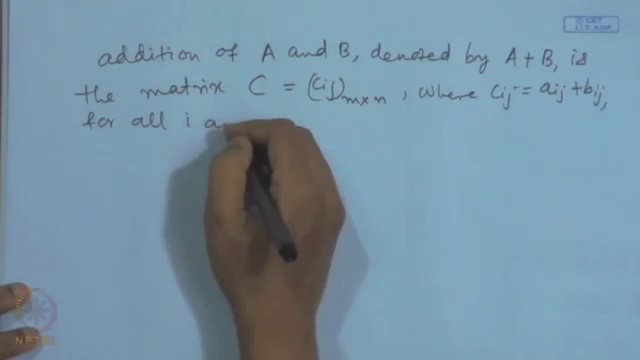 © CET
I.I.T. KGP
addition of A and B, denoted by A + B, is
the matrix C = (cij)m×n, where cij = aij + bij,
for all i a
NPTEL